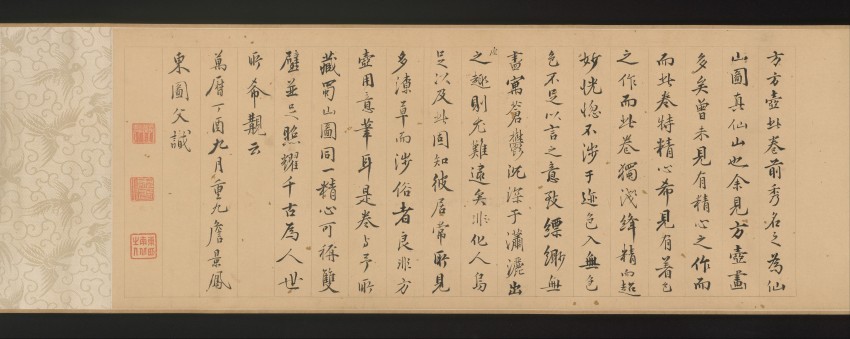 方方壺此卷前秀名之為仙
山圖真仙山也余見方壺畫
多矣曾未見有精心之作而
而此卷特精心希見有著色
之作而此卷獨淺絳精而超
妙恍惚不涉于迹色入無色
色不足以言之意致縹緲無
畫寓蒼鬱沈深于瀟灑出
之趣則尤難逮矣非化人烏
足以及此固知彼居常所見
多潦草而涉俗者良非方
壺用意筆耳是卷與予所
藏蜀山圖同一精心可稱雙
璧並足照耀千古為人世
所希覯云
萬曆丁酉九月重九詹景鳳
東圖父識